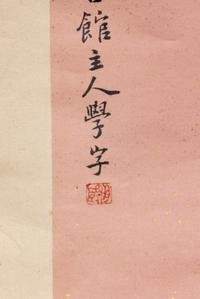 館主人學字